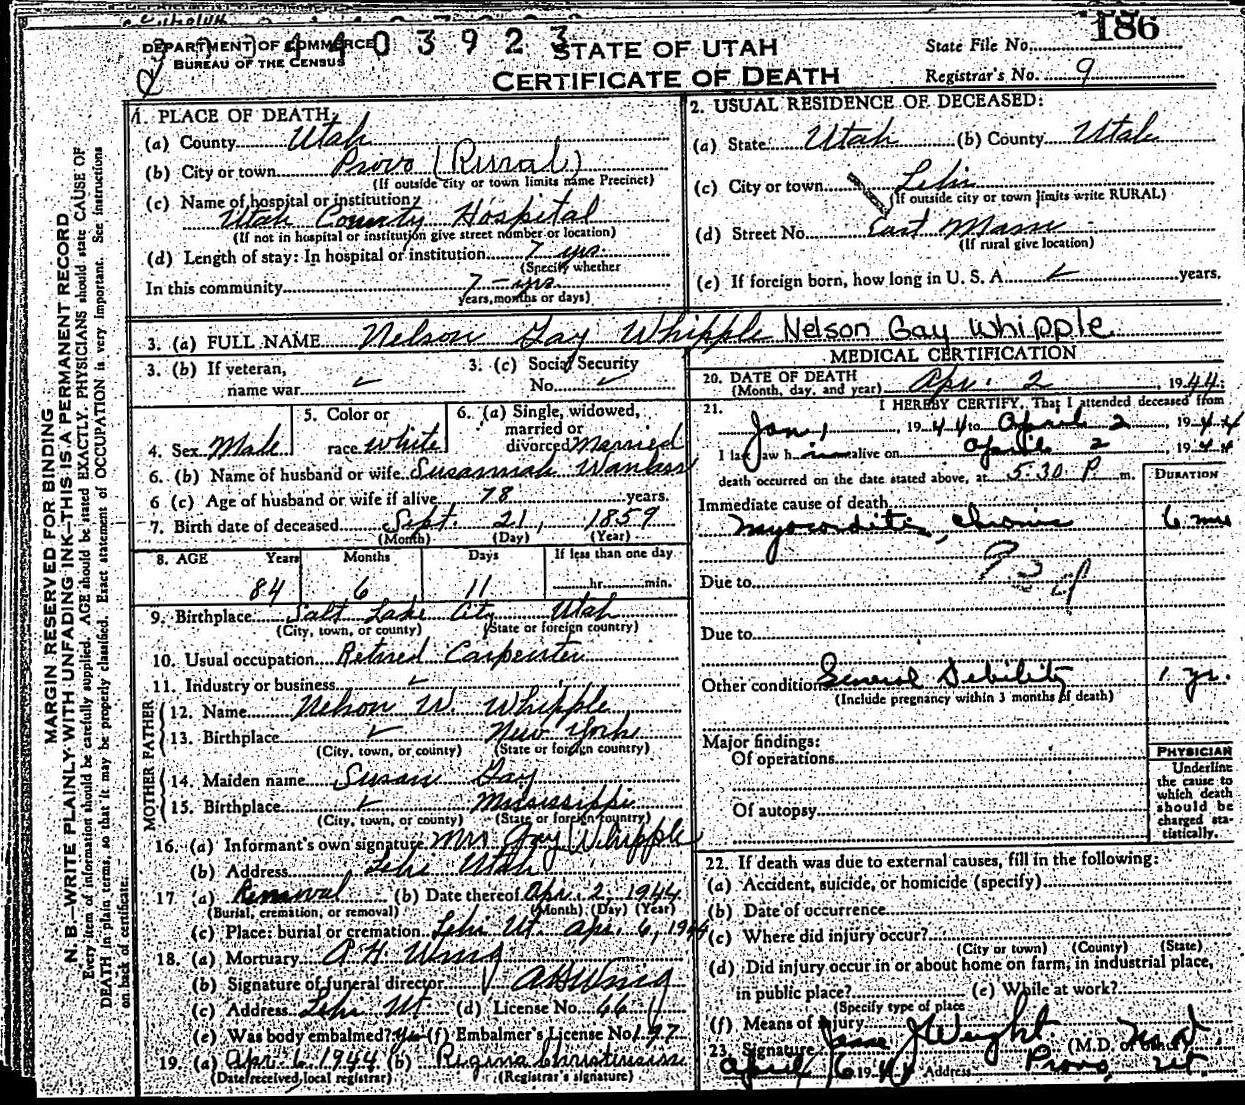 186
DEPARTMENT OF COMMERCE
BUREAU OF THE CENSUS
4403923
STATE OF UTAH
CERTIFICATE OF DEATH
State File No.
Registrar's No. 9
MARGIN RESERVED FOR BINDING
N. B.—WRITE PLAINLY WITH UNFADING INK—THIS IS A PERMANENT RECORD
Every item of information should be carefully supplied. AGE should be stated EXACTLY. PHYSICIANS should state CAUSE OF
DEATH in plain terms, so that it may be properly classified. Exact statement of OCCUPATION is very important. See instructions
on back of certificate.
1. PLACE OF DEATH:
(a) County Utah
(b) City or town Provo (Rural)
(If outside city or town limits name Precinct)
(c) Name of hospital or institution:
Utah County Hospital
(If not in hospital or institution give street number or location)
(d) Length of stay: In hospital or institution 7 yrs
(Specify whether
In this community 7 - yrs
years, months or days)
2. USUAL RESIDENCE OF DECEASED:
(a) State Utah (b) County Utah
(c) City or town Lehi
(If outside city or town limits write RURAL)
(d) Street No. East Main
(If rural give location)
(e) If foreign born, how long in U. S. A. years.
3. (a) FULL NAME Nelson Gay Whipple Nelson Gay Whipple
3. (b) If veteran,
name war
3. (c) Social Security
No.
4. Sex Male
5. Color or
race white
6. (a) Single, widowed,
married or
divorced Married
6. (b) Name of husband or wife Susannah Wanlass
6 (c) Age of husband or wife if alive 78 years.
7. Birth date of deceased Sept. 21, 1859
(Month) (Day) (Year)
8. AGE Years Months Days If less than one day
84 6 11 hr. min.
9. Birthplace Salt Lake City Utah
(City, town, or county) (State or foreign country)
10. Usual occupation Retired Carpenter
11. Industry or business
FATHER
12. Name Nelson W. Whipple
13. Birthplace New York
(City, town, or county) (State or foreign country)
MOTHER
14. Maiden name Susan Gay
15. Birthplace Mississippi
(City, town, or county) (State or foreign country)
16. (a) Informant's own signature Mrs Gay Whipple
(b) Address Lehi Utah
17 (a) Removal (b) Date thereof Apr. 2, 1944
(Burial, cremation, or removal) (Month) (Day) (Year)
(c) Place: burial or cremation Lehi Ut. Apr. 6, 1944
18. (a) Mortuary A. H. Wing
(b) Signature of funeral director A H Wing
(c) Address Lehi Ut (d) License No. 66
(e) Was body embalmed? Yes (f) Embalmer's License No. 197
19. (a) Apr. 6, 1944 (b) Regina Christinsen
(Date received local registrar) (Registrar's signature)
MEDICAL CERTIFICATION
20. DATE OF DEATH
(Month, day, and year) Apr. 2, 1944
21. I HEREBY CERTIFY, That I attended deceased from
Jan. 1, 1944 to April 2, 1944
I last saw him alive on April 2, 1944
death occurred on the date stated above, at 5:30 P. m.
DURATION
Immediate cause of death
Myocarditis, chronic 6 mos
Due to
Due to
Other conditions General Debility 1 yr.
(Include pregnancy within 3 months of death)
Major findings:
Of operations
Of autopsy
PHYSICIAN
Underline
the cause to
which death
should be
charged sta-
tistically.
22. If death was due to external causes, fill in the following:
(a) Accident, suicide, or homicide (specify)
(b) Date of occurrence
(c) Where did injury occur?
(City or town) (County) (State)
(d) Did injury occur in or about home on farm, in industrial place,
in public place? (e) While at work?
(Specify type of place
(f) Means of injury
23. Signature J Weight (M.D. or
April 6 1944 Address Provo, Ut.